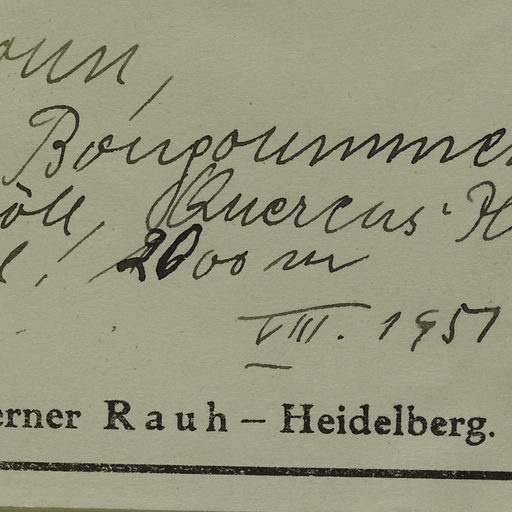 Bougoummer
Quercus-H
2000 m
VIII. 1951
erner Rauh – Heidelberg.